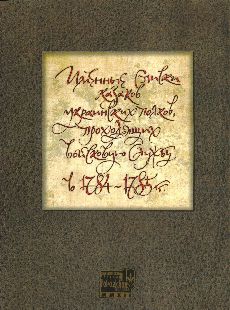 Именные Списки
казаков
украинских полков,
проходящих
войсковую Службу
в 1784-1785
MMXII